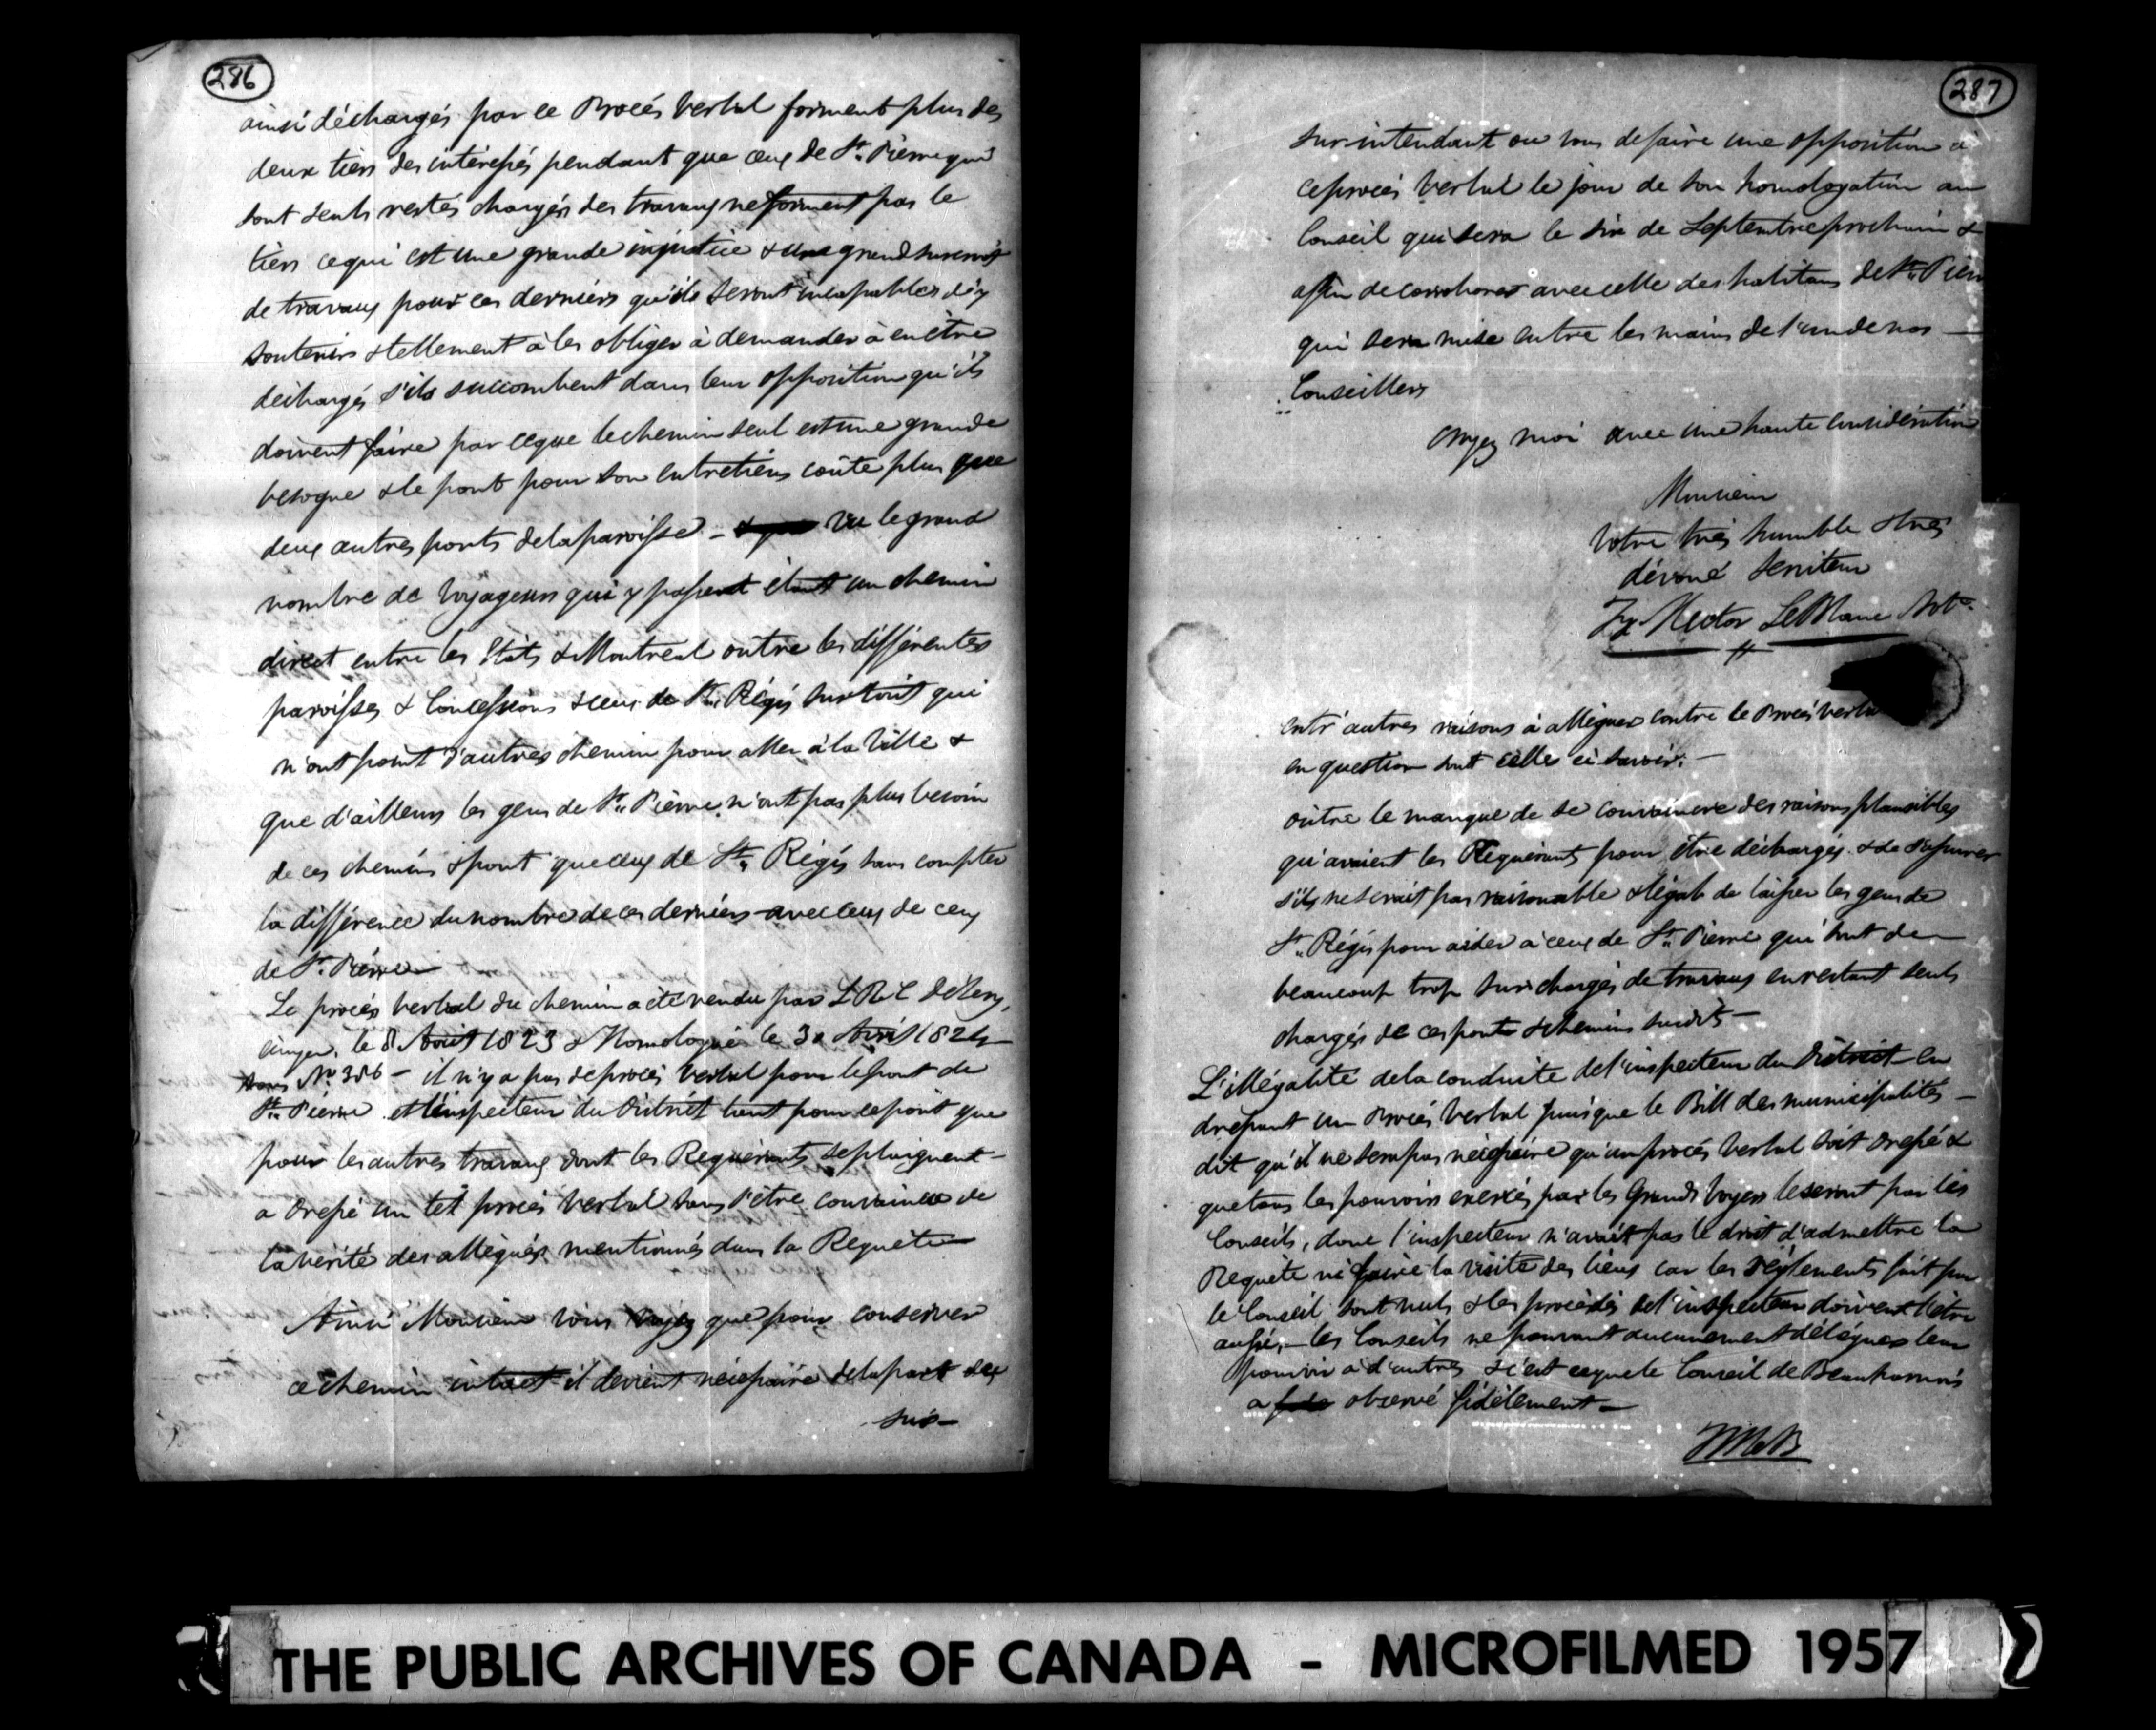 286
ainsi déchargés par ce Procés Verbal forment plus des
deux tiers des intéressés pendant que ceux de St. Pierre qui
sont seuls restés chargés des travaux ne forment pas le
tiers ce qui est une grande injustice & une grand surcroit
de travaux pour ces derniers qu'ils seront incapables d'y
soutenir & tellement à les obliger à demander à en être
déchargés s'ils succombent dans leur opposition qu'ils
doivent faire par ce que le chemin seul est une grande
besogne & le pont pour son entretiens coûte plus que
deux autres ponts de la paroisse - vu le grand
nombre de Voyageurs qui y passent étant un chemin
direct entre les Etats & Montreal outre les différentes
paroisses & Concessions & ceux de St. Régis surtout qui
n'ont point d'autres chemin pour aller à la Ville &
que d'ailleurs les gens de St. Pierre n'ont pas plus besoin
de ces chemins & pont que ceux de St. Régis sans compter
la différence du nombre de ces derniers avec ceux de ceux
de St. Pierre
Le procés verbal du chemin a été rendu par L R C Déléry,
écuyer, le 8 Août 1823 & Homologué le 30 Avril 1824
sous No. 386 - il n'y a pas de procés verbal pour le pont de
St. Pierre et l'inspecteur du District tant pour ce pont que
pour les autres travaux dont les Requérants se plaignent -
a dressé un tel procés verbal sans s'être convaincu de
la vérité des allégués mentionnés dans la Requête
Ainsi Monsieur vous voyez que pour conserver
ce chemin intact il devient nécessaire de la part des
sur-
287
sur-intendant ou vous de faire une opposition à
ce procés verbal le jour de son homologation au
Conseil qui sera le six de Septembre prochain &
afin de corroborer avec celle des habitans de St. Pierre
qui sera mise entre les mains de l'un de nos
Conseillers
Croyez moi avec une haute considération
Monsieur
Votre très humble & très
dévoué serviteur
Hector LeBlanc Not.
entr'autres raisons à alléguer contre le Procés verbal
en question sont celle ci savoir. -
outre le manque de se convaincre des raisons plausibles
qu'avaient les Requérants pour être déchargés & de s'assurer
s'il ne serait pas raisonable & légale de laisser les gens de
St. Régis pour aider à ceux de St. Pierre qui sont de
beaucoup trop surchargés de travaux en restant seuls
chargés de ces ponts & chemins susdits -
L'illégalité de la conduite de l'inspecteur du District en
dressant un Procés Verbal puisque le Bill des municipalités
dit qu'il ne sera pas nécessaire qu'un procés verbal soit dressé &
que tous les pouvoirs exercés par les Grands Voyers le seront par les
Conseils, donc l'inspecteur n'avait pas le droit d'admettre la
Requête ni faire la visite des lieux car les réglements fait par
le Conseil sont nuls & les procédés de l'inspecteur doivent l'être
aussi, - les Conseils ne pouvant aucunement déléguer leur
pouvoir à d'autres & c'est ce que le Conseil de Beauharnois
a observé fidélement -
THE PUBLIC ARCHIVES OF CANADA - MICROFILMED 1957